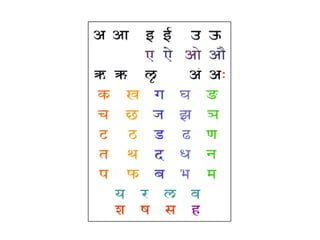 अ आ इ ई उ ऊ
ए ऐ ओ औ
ऋ ऋ ऌ अं अः
क ख ग घ ङ
च छ ज झ ञ
ट ठ ड ढ ण
त थ द ध न
प फ ब भ म
य र ल व
श ष स ह